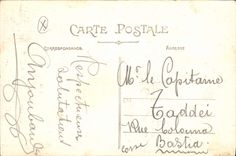 CARTE POSTALE
CORRESPONDANCE
ADRESSE
Respectueuses
salutations
Mr le Capitaine
Taddei
Rue Colonna
Bastia
Corse